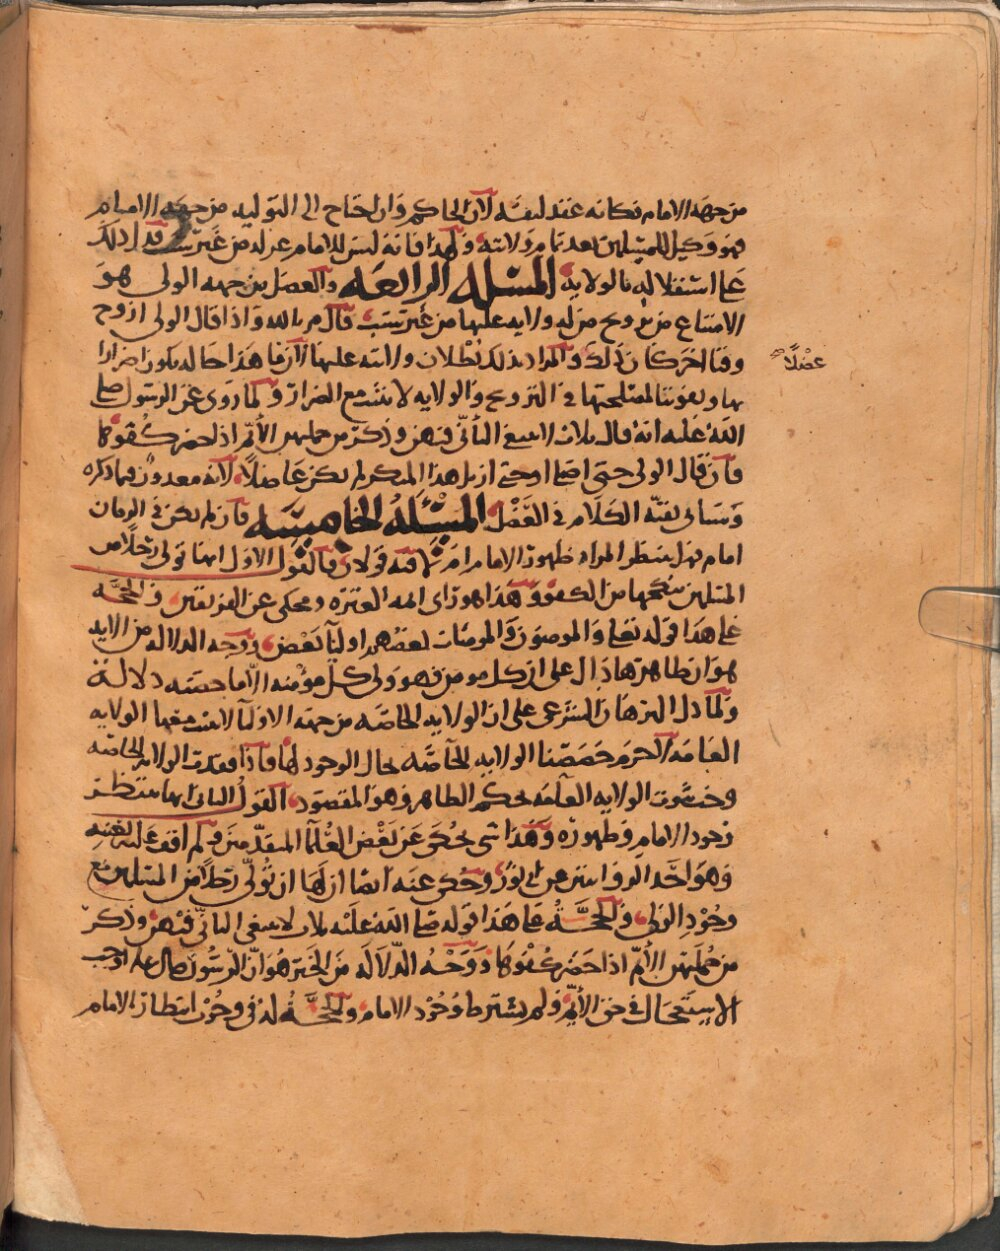 من جهة الامام فكانه عقد لنفسه لان الحاكم وان احتاج الى التوليه من جهة الامام
فهو وكيل للمسلمين بعد تمام ولايته ولهذا فانه ليس للامام عزله من غير سبب فدل ذلك
على استقلاله بالولاية المسئله الرابعه والعضل من جهة الولى هو
الامتناع من تزويج من له ولايه عليها من غير سبب قال م بالله واذا قال الولى ازوج
وقتا اخر كان ذلك والمراد بذلك بطلان ولايته عليها لان ما هذا حاله يكون اضرارا
عضلا
بها وتفويتا لمصلحتها فى التزويج والولايه لا تثبت مع الضرار ولما روى عن الرسول صلى
الله عليه انه قال ثلاث لا ينبغى التأنى فيهن وذكر من جملتهن الأيم اذا حضر كفوها
فان قال الولى حتى اصلى او حتى ازيل هذا المنكر لم يكن عاضلا لانه معذور فيما ذكره
وسياتى بقية الكلام فى العضل المسئلة الخامسه فان لم يكن فى الزمان
امام فهل ينتظر المراه ظهور الامام ام لا فيه قولان فالقول الاول انها تولى رجلا من
المسلمين ينكحها من الكفو وهذا هو راى ائمه العتره ومحكى عن الفريقين والحجه
على هذا قوله تعالى والمومنون والمومنات بعضهم اوليآ بعض ووجه الدلاله من الايه
هو ان ظاهرها دال على ان كل مومن فهو ولى كل مؤمنه الا ما خصته دلالة
ولما دل البرهان الشرعى على ان الولايه الخاصه من جهة الاوليآ لا تثبت معها الولايه
العامه لا جرم خصصنا الولايه الخاصه بحال الوجود لها فاذا فقدت الولايه الخاصه
وجب ثبوت الولايه العآمه بحكم الظاهر وهو المقصود القول الثانى انها تنتظر
وجود الامام وظهوره وهذا شى يحكى عن بعض العلمآ المتقدمين ولم اقف على تعيينه
وهو احد الروايتين عن ابى ثور وحكى عنه ايضا ان لها ان تولى رجلا من المسلمين مع
وجود الولى والحجة على هذا قوله صلى الله عليه ثلاث لا ينبغى التانى فيهن وذكر
من جملتهن الأيم اذا حضر كفوها ووجه الدلاله من الخبر هو ان الرسول صلى عليه اوجب
الاستعجال فى حق الأيم ولم يشترط وجود الامام والحجة له فى وجوب انتظار الامام